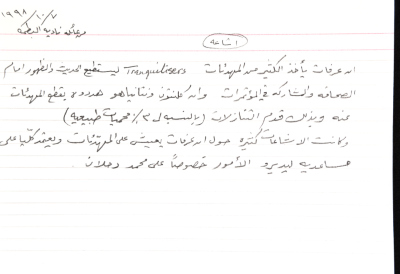 ١٩٩٨/١٠/٧
من عائلة نادية البطمة
اشاعة
ان عرفات يأخذ الكثير من المهدئات Tranquilisers ليستطيع الحديث والظهور امام
الصحافة والمشاركة في المؤتمرات وان كلنتون ونتانياهو هددوه بقطع المهدئات
عنه وبذلك قدم التنازلات (بالنسبة ل ٣٪ محميات طبيعية)
وكانت الاشاعات كثيرة حول ان عرفات يعيش على المهدئات ويعتمد كليا على
مساعديه ليديرو الأمور خصوصاً على محمد دحلان.